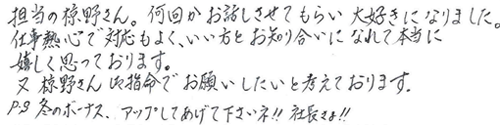 担当の椋野さん。何回かお話しさせてもらい大好きになりました。
仕事熱心で対応もよく、いい方とお知り合いになれて本当に
嬉しく思っております。
又椋野さんご指命でお願いしたいと考えております。
P.S 冬のボーナス、アップしてあげて下さいネ!! 社長さま!!